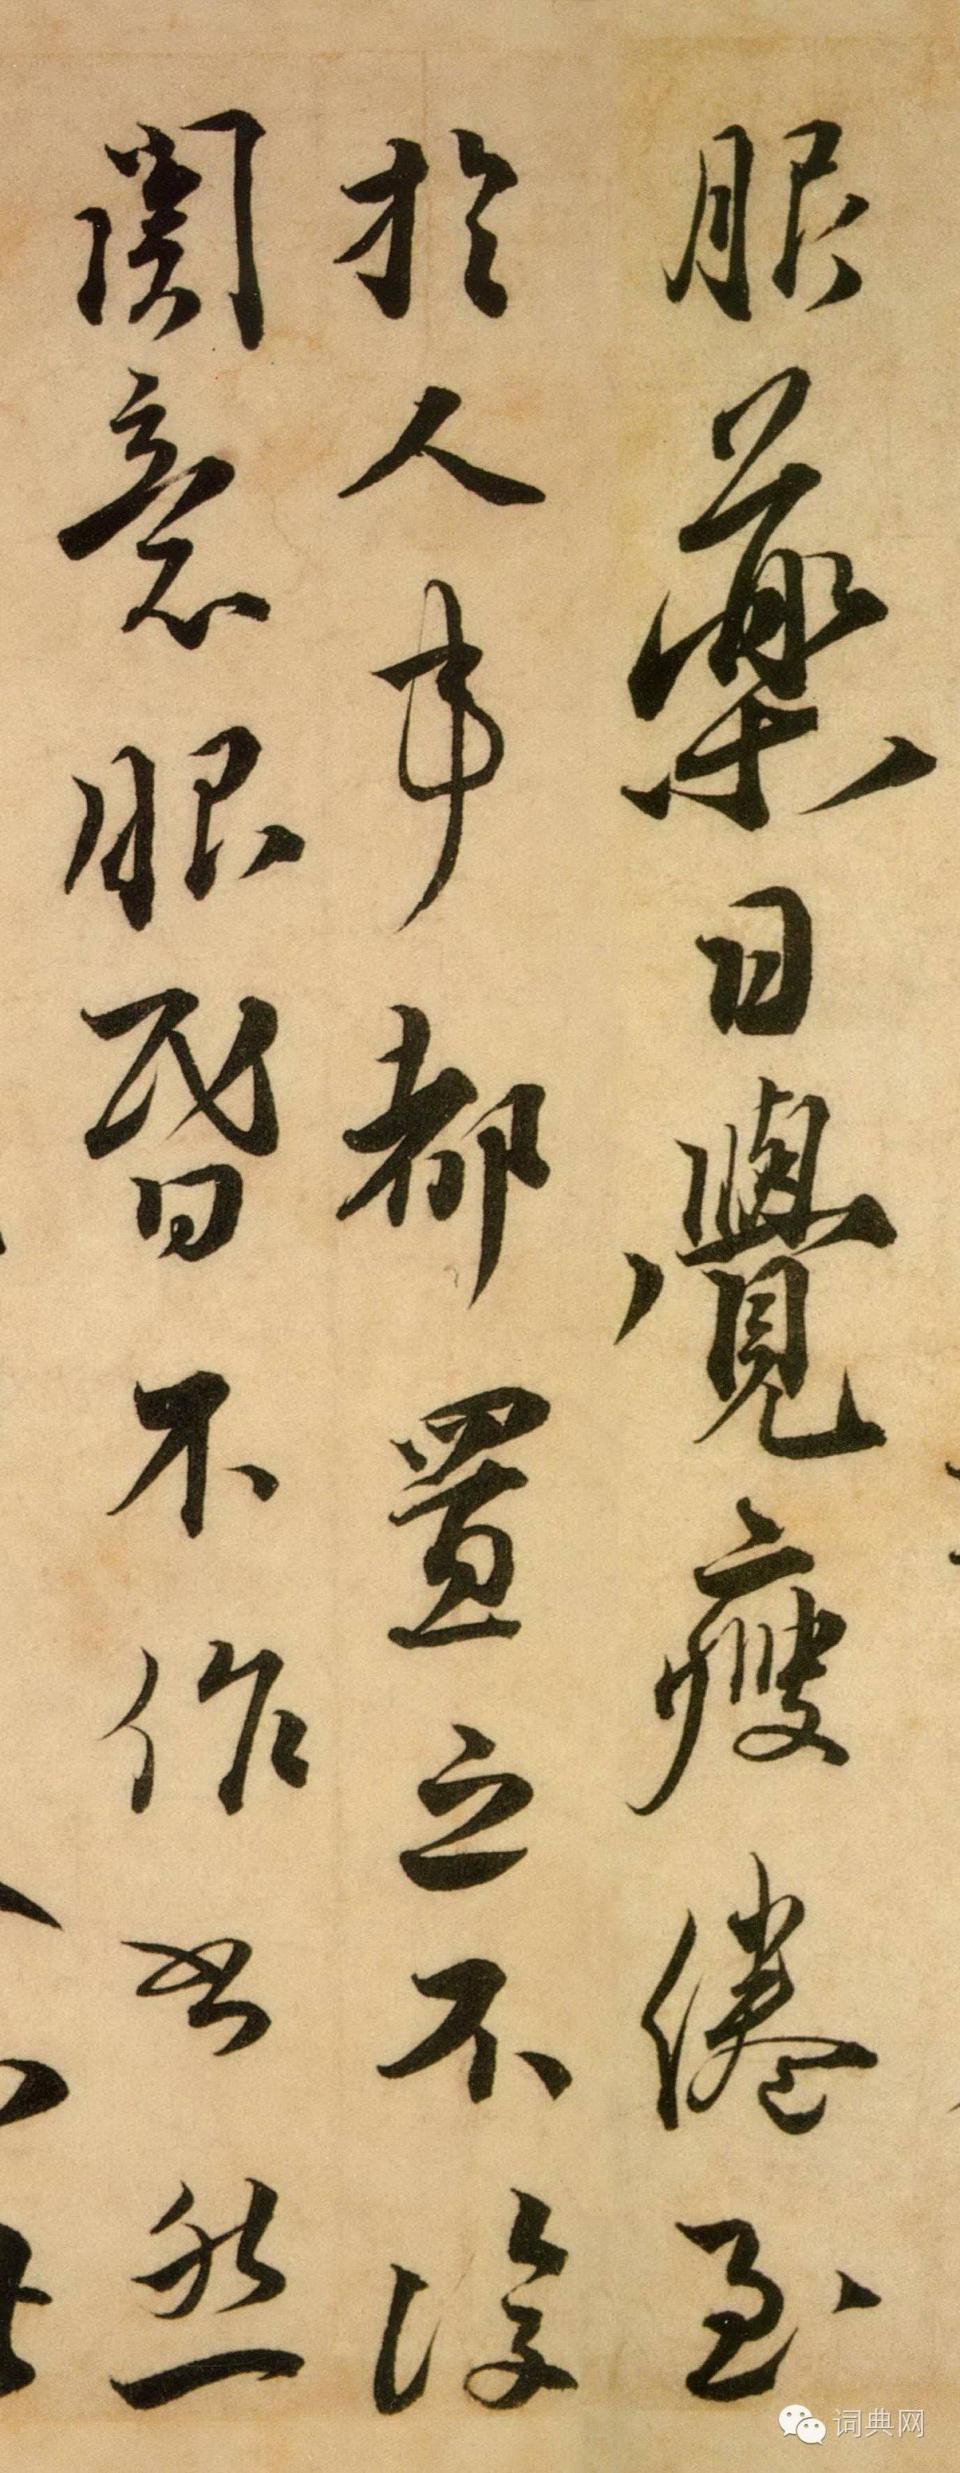 服藥日覺瘦倦至
於人事都置之不復
關意眼昏不作書然
词典网